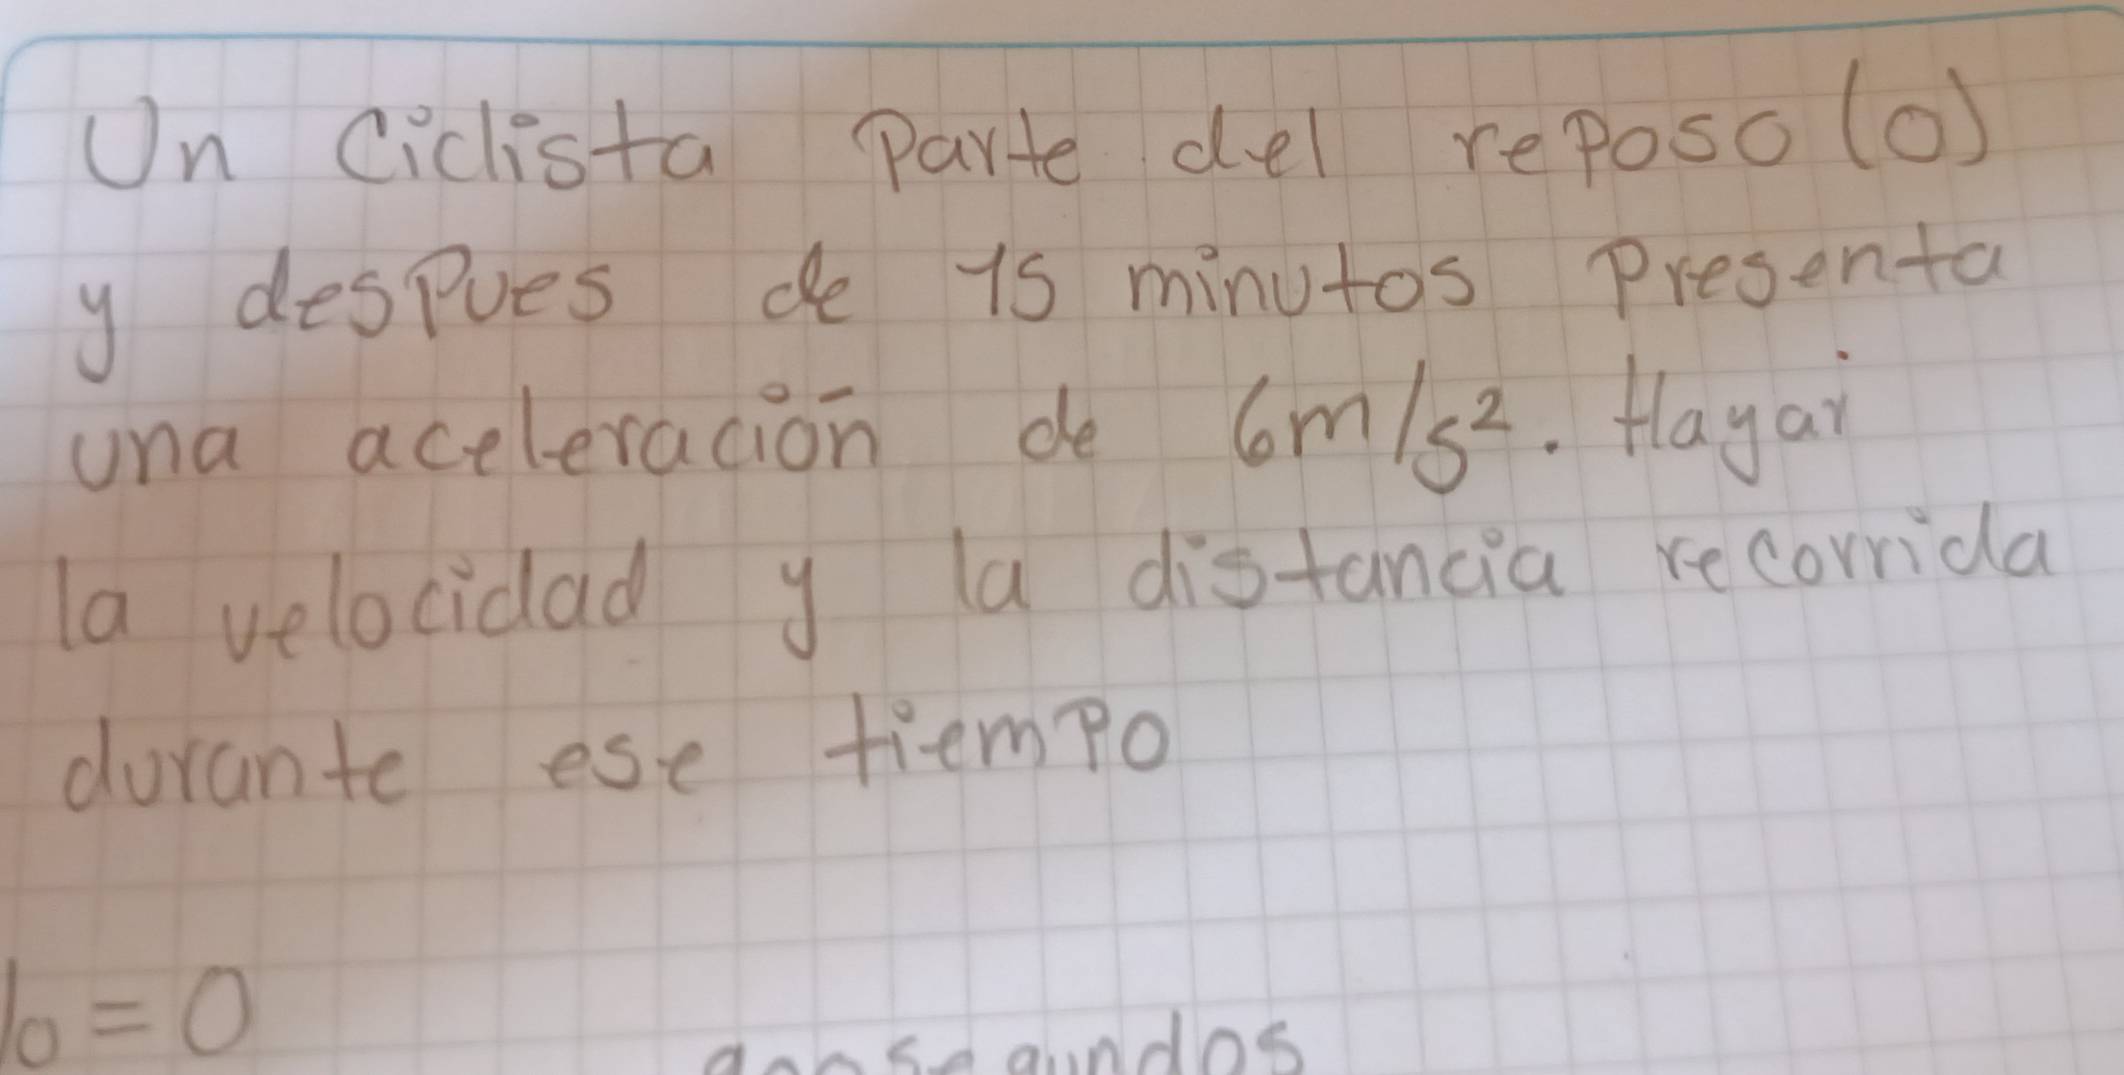 Un ciclista Parte del reposo (0)
y despues de 15 minutos Presenta
una aceleración de 6m/s². Hayar
la velocidad y la distancia recorrida
durante ese tiempo
Vo = 0
900 segundos